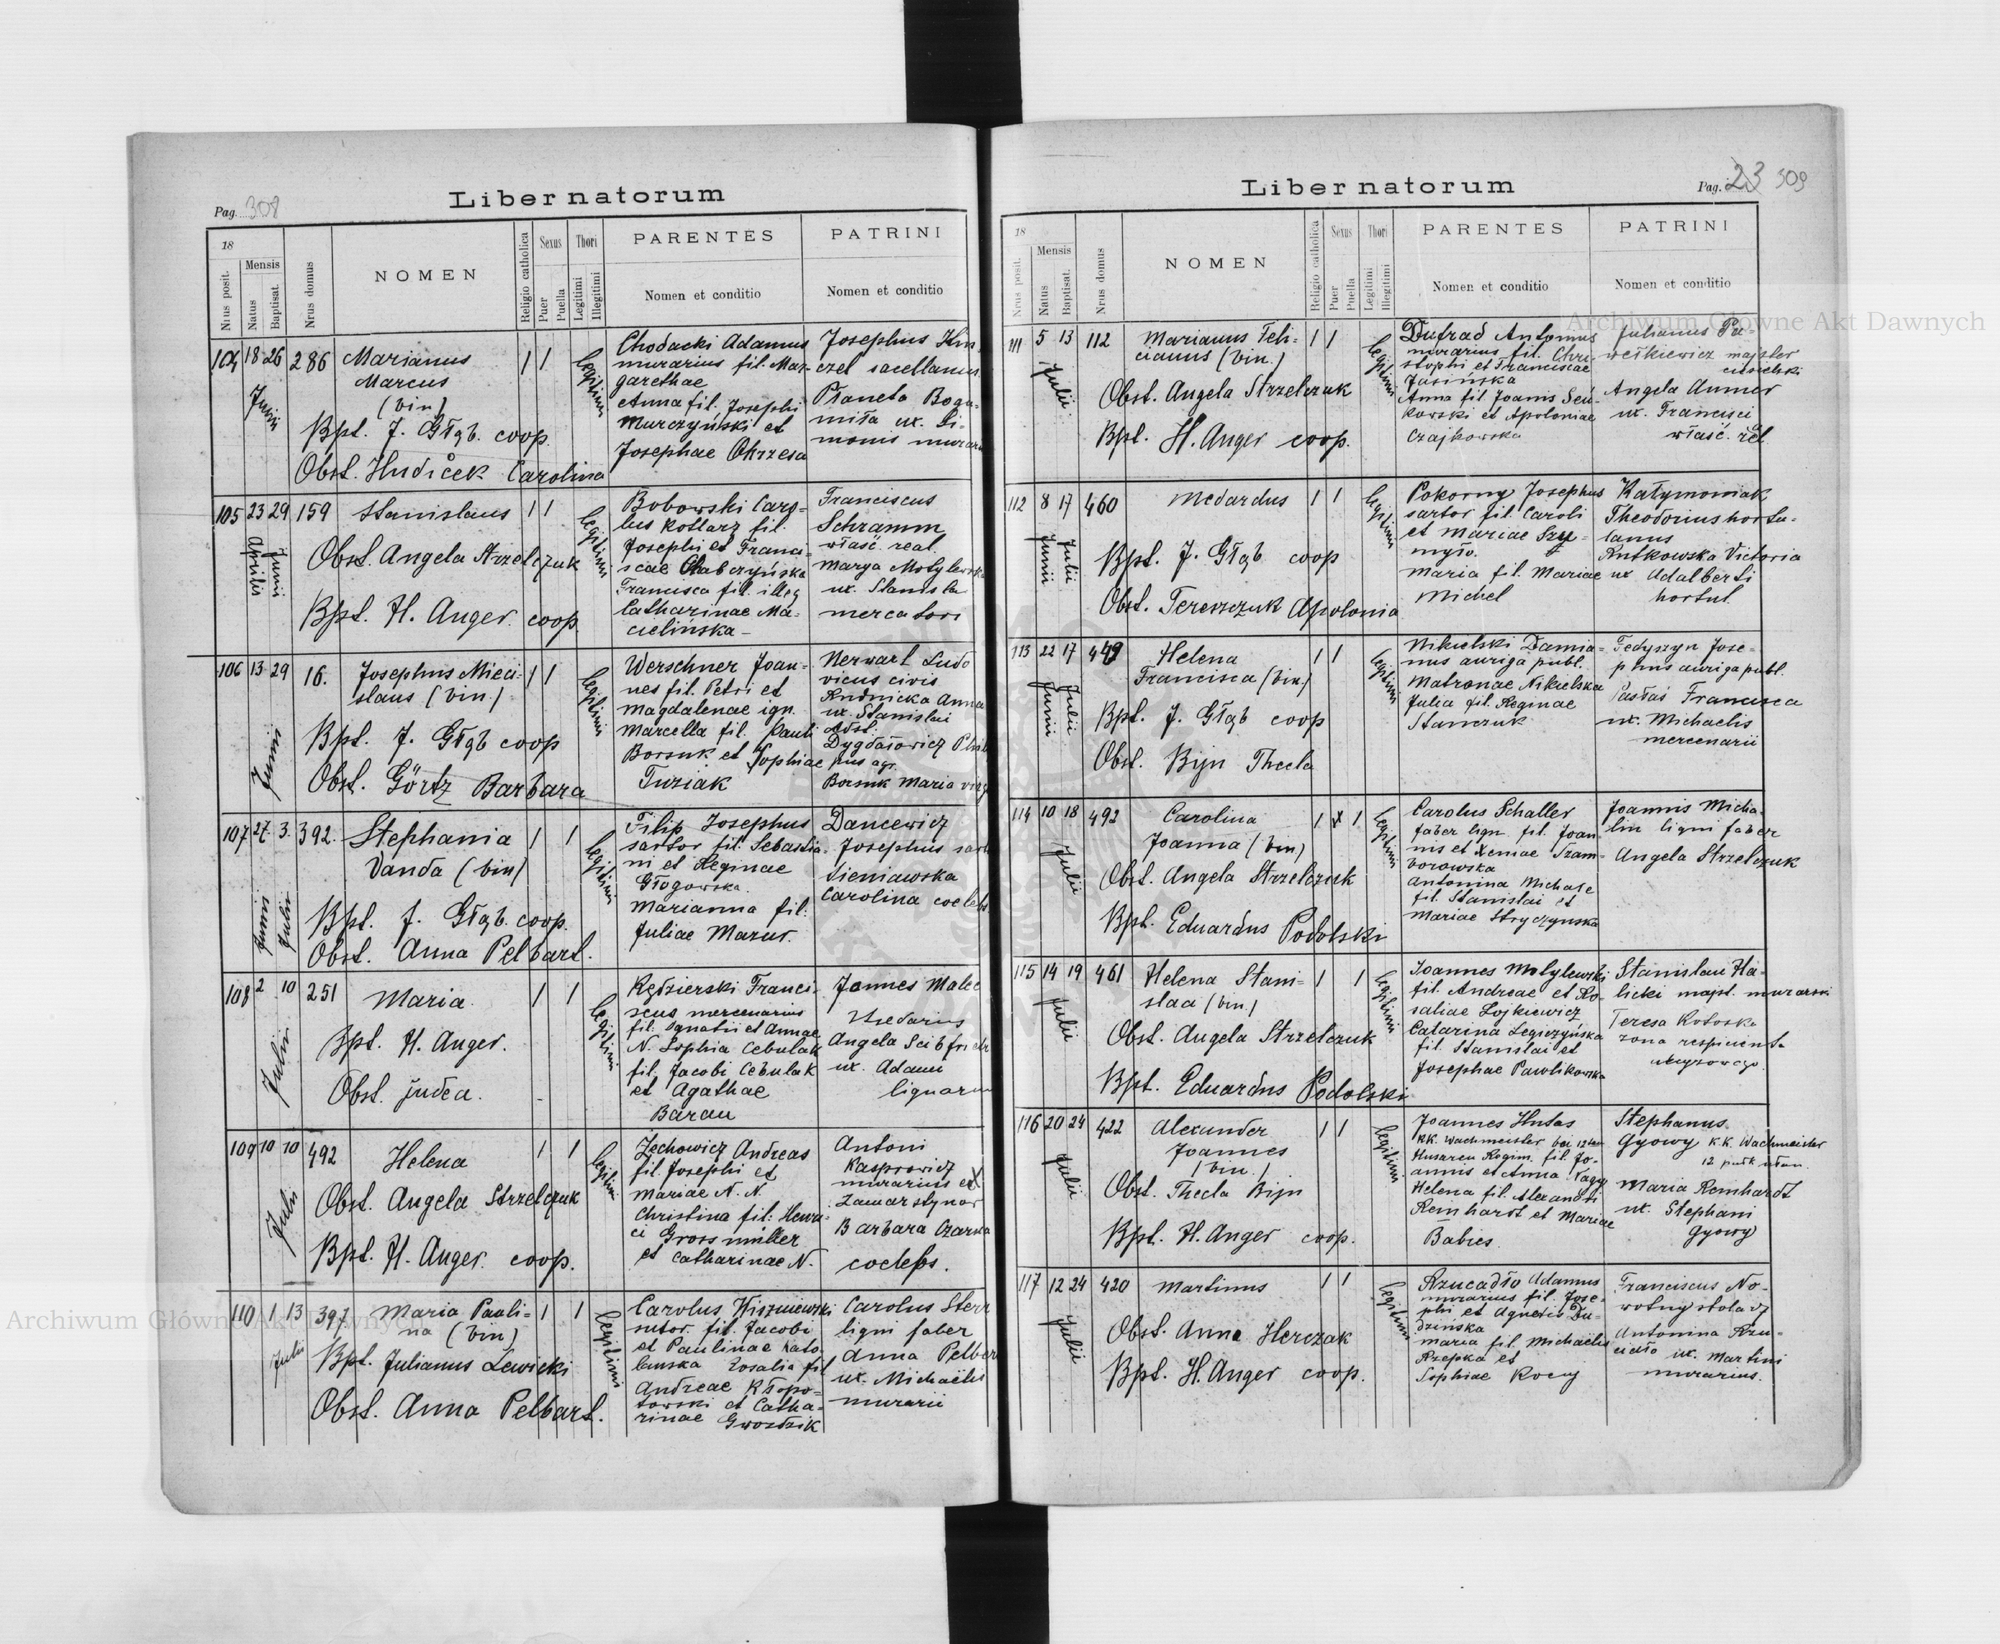 Pag. 308
Liber natorum
18
Nrus posit.
Mensis
Natus
Baptisat.
Nrus domus
NOMEN
Religio catholica
Sexus
Puer
Puella
Thori
Legitimi
Illegitimi
PARENTES
Nomen et conditio
PATRINI
Nomen et conditio
104 18 26 286 Marianus
Marcus
(bin)
Junii
Bpt. J. Głąb. coop.
Obst. Hudiček Carolina
1 1
legitimi
Chodacki Adamus
murarius fil. Mar-
garethae
Anna fil. Josephi
Murczyński et
Josephae Okrzesa
Josephus Hin
czel sacellanus
Płaneta Bogu-
miła ux. Si-
monis murarii
105 23 29 159 Stanislaus
Aprilis
Junii
Obst. Angela Strzelczuk
Bpt. H. Anger. coop.
1 1
legitimi
Bobowski Caro-
lus kotlarz fil.
Josephi et Franci-
scae Chabczyńska
Francisca fil. illeg
Catharinae Ma-
cielińska
Franciscus
Schramm
właść. real.
Marya Motylewska
ux. Stanisla
mercatori
106 13 29 16. Josephus Mieci-
slaus (bin)
Junii
Bpt. J. Głąb coop
Obst. Görtz Barbara
1 1
legitimi
Werschner Joan-
nes fil. Petri et
Magdalenae ign.
Marcella fil. Pauli
Borsuk et Sophiae
Tuziak
Nerwart Ludo
vicus civis
Rudnicka Anna
ux. Stanislai
obst.
Dygdałowicz Phili
pus agr.
Borsuk Maria virg
107 27. 3. 392. Stephania
Vanda (bin)
Junii
Julii
Bpt. J. Głąb. coop.
Obst. Anna Pelbart.
1 1
legitimi
Filip Josephus
sartor fil. Sebastia-
ni et Reginae
Głogowska.
Marianna fil.
Juliae Mazur.
Dancewicz
Josephus sart
Sieniawska
Carolina coelebs
108 2 10 251 Maria.
Julii
Bpt. H. Anger.
Obst. judea.
1 1
legitimi
Kędzierski Franci-
scus mercenarius
fil. Ignatii et Annae
N. Sophia Cebulak
fil. Jacobi Cebulak
et Agathae
Baran
Joannes Malec
Angela Seibfried
ux. Adami
109 10 10 492 Helena
Julii
Obst. Angela Strzelczuk
Bpt. H. Anger. coop.
1 1
legitimi
Zechowicz Andreas
fil. Josephi et
Mariae N. N.
Christina fil: Henri-
ci Grossmüller
et Catharinae N.
Antoni
Kasprowicz
murarius ex
Zamarstynow
Barbara Czarna
coelebs.
110 1 13 397. Maria Pauli-
na (bin)
Julii
Bpt. Julianus Lewicki
Obst. Anna Pelbart.
1 1
legitimi
Carolus Wiszniewski
sutor. fil. Jacobi
et Paulinae Kato
lenska Rosalia fil
Andreae Kłopo-
towski et Catha-
rinae Gwoździk
Carolus Sterr
ligni faber
Anna Pelbar
ux. Michaelis
murarii
Liber natorum
Pag. 23 309
18
Nrus posit.
Mensis
Natus
Baptisat.
Nrus domus
NOMEN
Religio catholica
Sexus
Puer
Puella
Thori
Legitimi
Illegitimi
PARENTES
Nomen et conditio
PATRINI
Nomen et conditio
111 5 13 112 Marianus Feli-
cianus (bin.)
Julii
Obst. Angela Strzelczuk
Bpt. H. Anger coop.
1 1
legitimi
Dufrad Antonius
murarius fil. Chri-
stophi et Franciscae
Jasińska
Anna fil Joanis Seń-
kowski et Apoloniae
Czajkowska
Julianus Pa-
weikiewicz majster
ciesielski
Angela Anner
ux. Francisci
właść. real.
112 8 17 460 Medardus
Junii
Julii
Bpt. J. Głąb coop
Obst. Tereszczuk Apolonia
1 1
legitimi
Pokorny Josephus
sartor fil. Caroli
et Mariae Szy-
myło.
Maria fil. Mariae
Michel
Katymoniak
Theodorius hortu-
lanus
Rutkowska Victoria
ux Adalberti
hortul.
113 22 17 449 Helena
Francisca (bin)
Junii
Julii
Bpt. J. Głąb coop
Obst. Bijn Thecla
1 1
legitimi
Nikielski Damia-
nus auriga publ.
Matronae Nikielska
Julia fil. Reginae
Stanczuk
Fedyszyn Jose-
phus auriga publ.
Pastaś Francisca
ux. Michaelis
mercenarii
114 10 18 492 Carolina
Joanna (bin)
Julii
Obst. Angela Strzelczuk
Bpt. Eduardus Podolski
1 x 1
legitimi
Carolus Schaller
faber lign. fil. Joan
nis et Xeniae Szam-
borowska
Antonina Michale
fil. Stanislai et
Mariae Stryczynska
Joannis Micha-
lin ligni faber
Angela Strzelczuk
115 14 19 461 Helena Stani-
slaa (bin.)
Julii
Obst. Angela Strzelczuk
Bpt. Eduardus Podolski
1 1
legitimi
Joannes Motylewski
fil. Andreae et Ro-
saliae Łojkiewicz
Catarina Legiczyńska
fil. Stanislai et
Josephae Pawlikowska
Stanislau Ha-
licki majst. murarski
Teresa Kotoska
żona respicienta
116 20 24 422 Alexander
Joannes
(bin.)
Julii
Obst. Thecla Bijn
Bpt. H. Anger coop.
1 1
legitimi
Joannes Husas
KK. Wachmeister bei 12ten
Husaren Regim. fil. Jo-
annis et Anna Nagy
Helena fil. Alexandri
Remhardt et Mariae
Babies
Stephanus
Gyowy K.K. Wachmeister
12 pułk ułan.
Maria Remhardt
ux. Stephani
Gyowy
117 12 24 420 Martinus
Julii
Obst. Anna Herczak
Bpt. H. Anger coop.
1 1
legitimi
Rzucadło Adamus
murarius fil. Jose-
phi et Agnetis Du-
dzińska
Maria fil. Michaelis
Rzepka et
Sophiae Kocuj
Franciscus No-
wotny stolarz
Antonina Rzu-
cadło ux. Martini
murarius.
Archiwum Główne Akt Dawnych
Archiwum Główne Akt Dawnych